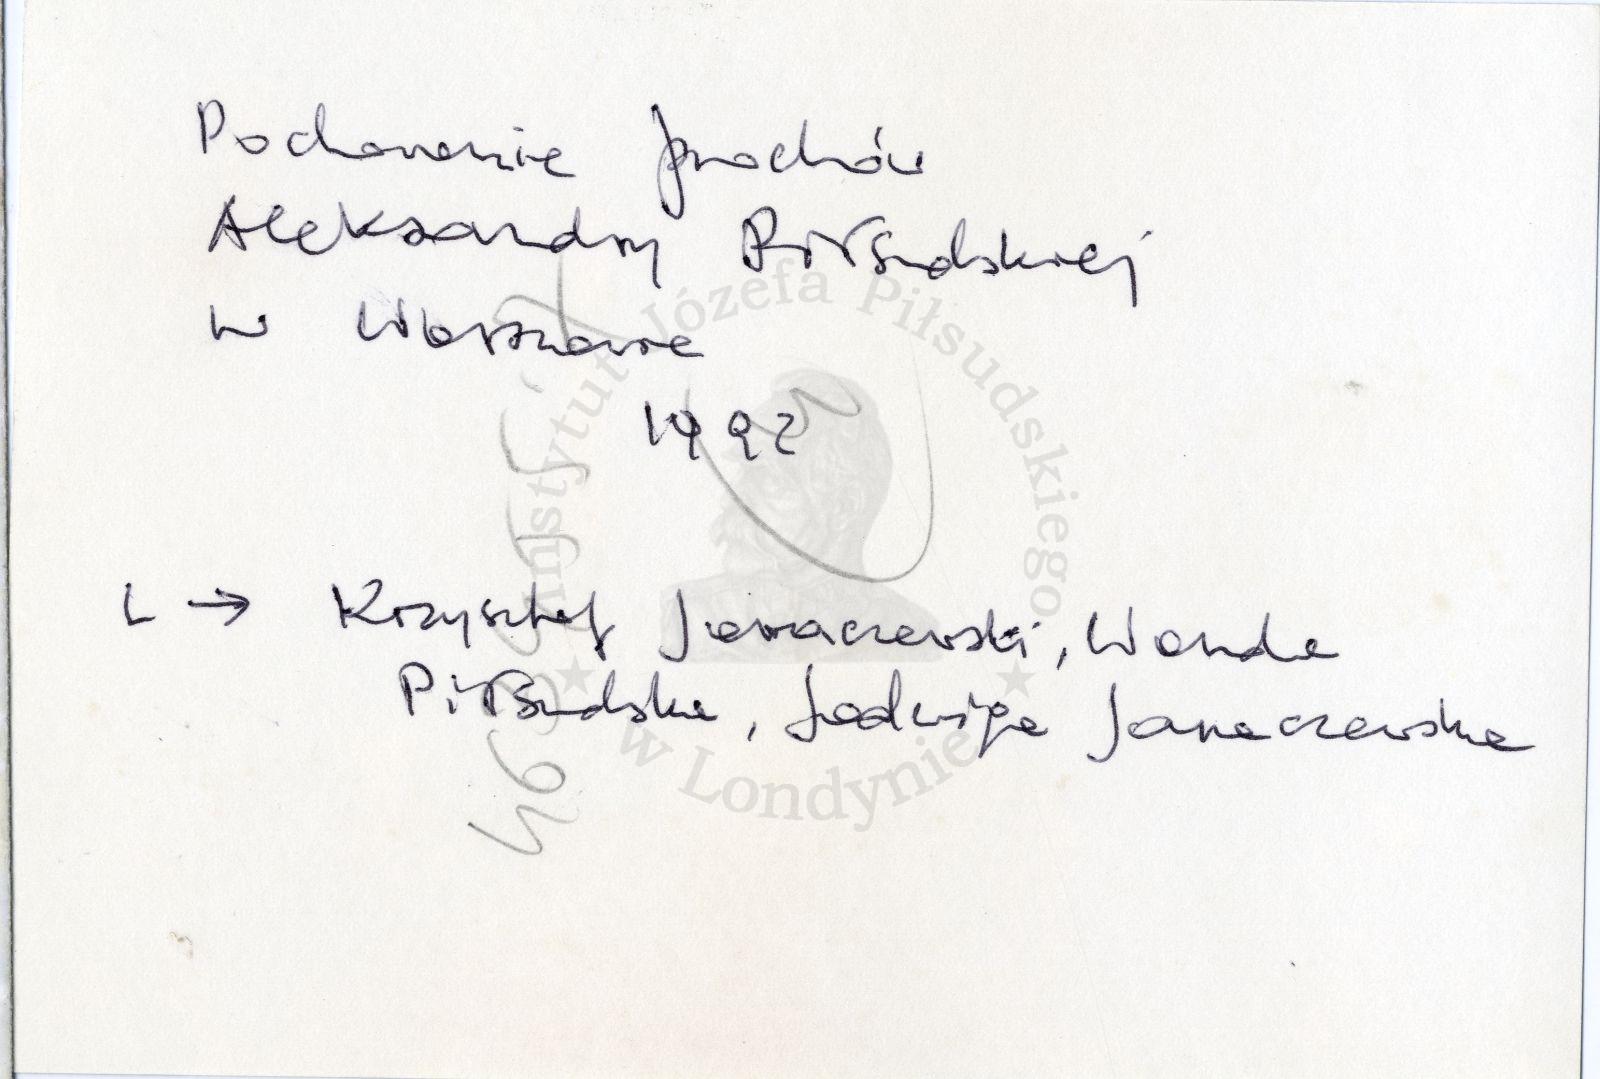 Pochowanie prochów
Aleksandry Piłsudskiej
w Warszawie
1992
L → Krzysztof Jaraczewski, Wanda
Piłsudska, Jadwiga Jaraczewska
Instytut Józefa Piłsudskiego
w Londynie